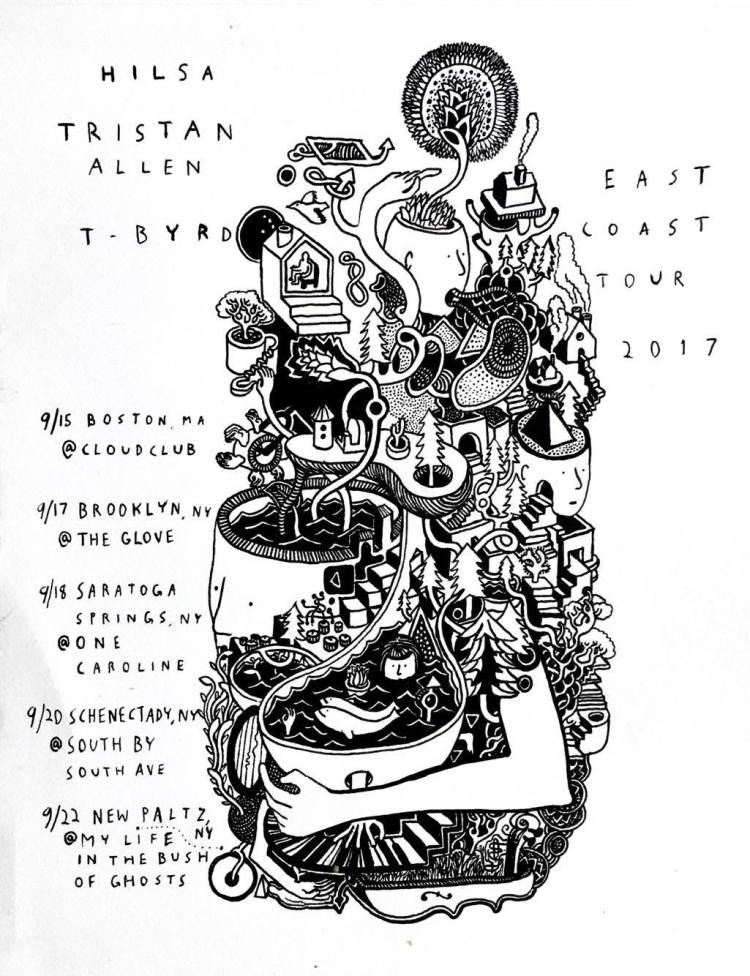 HILSA
TRISTAN
ALLEN
T-BYRD
EAST
COAST
TOUR
2017
9/15 BOSTON, MA
@CLOUDCLUB
9/17 BROOKLYN, NY
@ THE GLOVE
9/18 SARATOGA
SPRINGS, NY
@ONE
CAROLINE
9/20 SCHENECTADY, NY
@SOUTH BY
SOUTH AVE
9/22 NEW PALTZ,
@MY LIFE NY
IN THE BUSH
OF GHOSTS